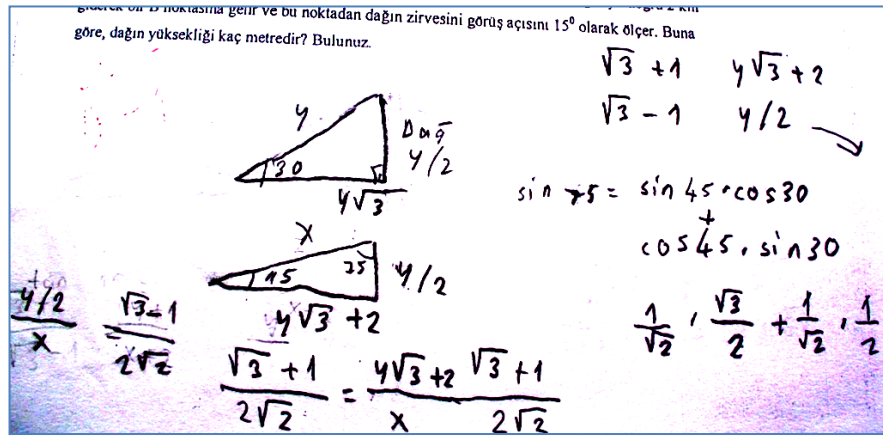 giderek bir B noktasına gelir ve bu noktadan dağın zirvesini görüş açısını 15⁰ olarak ölçer. Buna
göre, dağın yüksekliği kaç metredir? Bulunuz.
√3 + 1 y√3 + 2
√3 - 1 y/2
y Dağ
30 y/2
y√3
sin 75 = sin 45 · cos 30
+
cos 45 . sin 30
x
15 75 y/2
y√3 + 2
y/2 / x = √3-1 / 2√2
√3 + 1 / 2√2 = y√3+2 / x √3+1 / 2√2
1/√2 . √3/2 + 1/√2 . 1/2